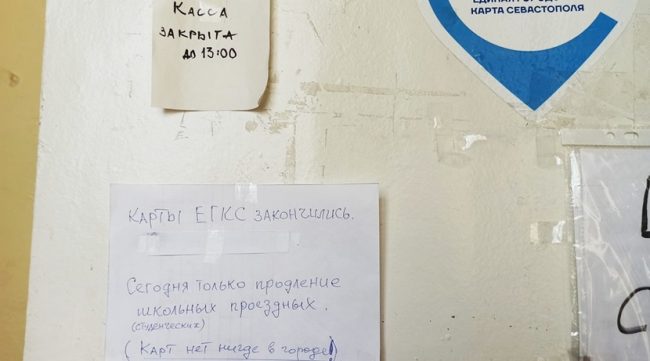 Касса
закрыта
до 13:00
КАРТА СЕВАСТОПОЛЯ
Карты ЕГКС закончились.
Сегодня только продление
школьных проездных.
(студенческих)
(Карт нет нигде в городе!)